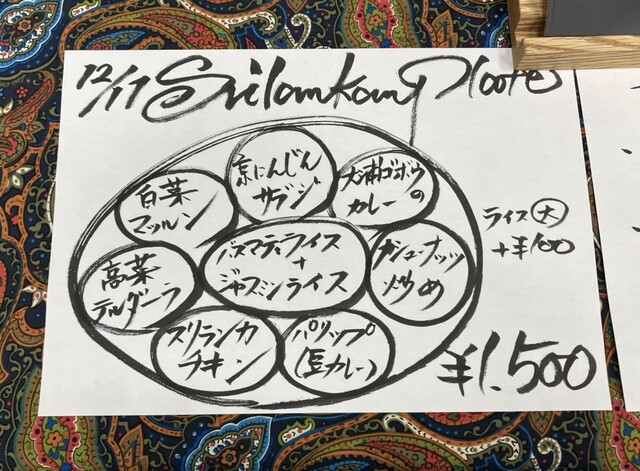 12/17 Srilankan Plate
京にんじん
サブジ
大浦ゴボウの
カレー
白菜
マッルン
バスマティライス
+
ジャスミンライス
カシューナッツ
炒め
ライス(大)
+¥100
高菜
テルダーラ
スリランカ
チキン
パリップ
(豆カレー)
¥1.500